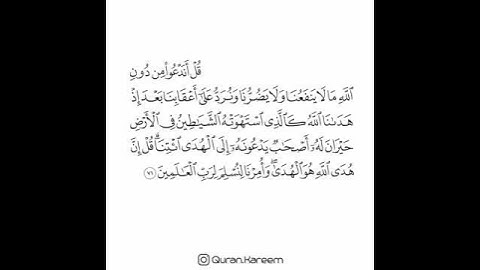 قُلْ أَنَدْعُوا۟ مِن دُونِ
ٱللَّهِ مَا لَا يَنفَعُنَا وَلَا يَضُرُّنَا وَنُرَدُّ عَلَىٰٓ أَعْقَابِنَا بَعْدَ إِذْ
هَدَىٰنَا ٱللَّهُ كَٱلَّذِى ٱسْتَهْوَتْهُ ٱلشَّيَـٰطِينُ فِى ٱلْأَرْضِ
حَيْرَانَ لَهُۥٓ أَصْحَـٰبٌ يَدْعُونَهُۥٓ إِلَى ٱلْهُدَى ٱئْتِنَا ۗ قُلْ إِنَّ
هُدَى ٱللَّهِ هُوَ ٱلْهُدَىٰ ۖ وَأُمِرْنَا لِنُسْلِمَ لِرَبِّ ٱلْعَـٰلَمِينَ ٧١
Quran.Kareem